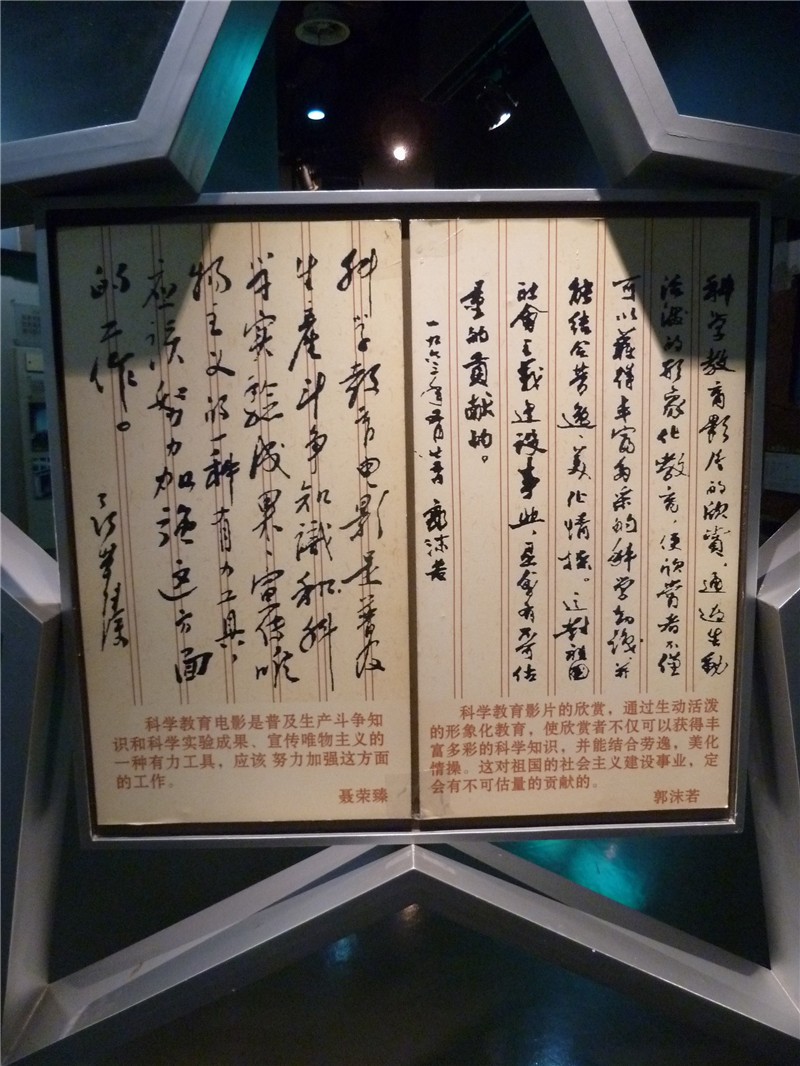 科学教育电影是普及
生產斗争知識和科
学实验成果、宣传唯
物主义的一种有力工具，
应该努力加强这方面
的工作。
聂荣臻
科学教育电影是普及生产斗争知
识和科学实验成果、宣传唯物主义的
一种有力工具，应该 努力加强这方面
的工作。
聂荣臻
科学教育影片的欣赏，通过生動
活泼的形象化教育，使欣赏者不僅
可以获得丰富多采的科学知识，并
能结合劳逸、美化情操。这對祖国
社會主義建设事业，是會有不可估
量的贡献的。
郭沫若
科学教育影片的欣赏，通过生动活泼
的形象化教育，使欣赏者不仅可以获得丰
富多彩的科学知识，并能结合劳逸，美化
情操。这对祖国的社会主义建设事业，定
会有不可估量的贡献的。
郭沫若